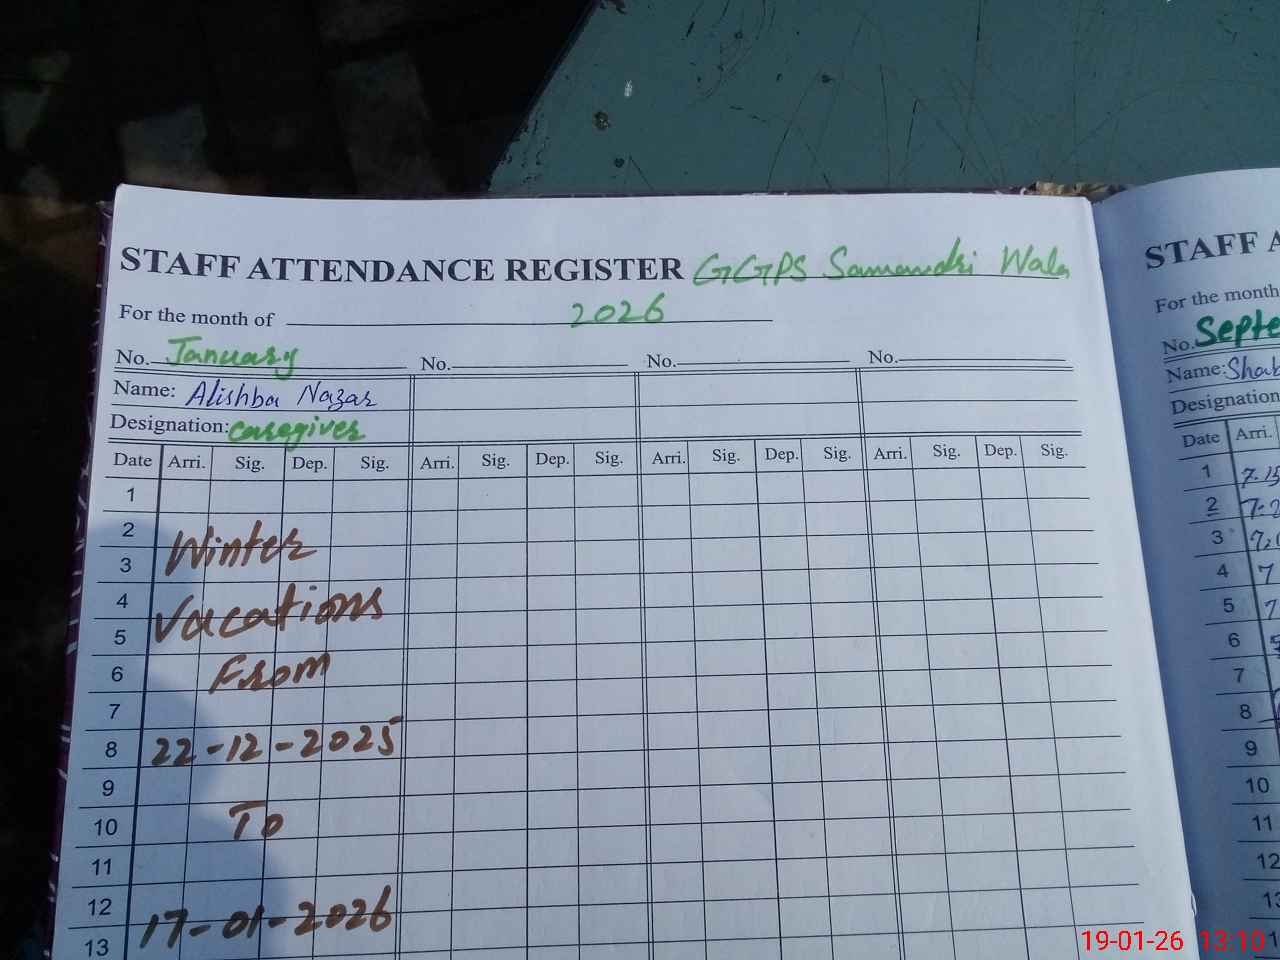 STAFF ATTENDANCE REGISTER GGPS Samandri Wala
For the month of 2026
No. January No. No. No.
Name: Alishba Nazar
Designation: caregiver
Date Arri. Sig. Dep. Sig. Arri. Sig. Dep. Sig. Arri. Sig. Dep. Sig. Arri. Sig. Dep. Sig.
1
2
Winter
3
4
Vacations
5
6 From
7
8 22-12-2025
9
10 To
11
12
17-01-2026
13
STAFF A
For the month
No. Septe
Name: Shab
Designation
Date Arri.
1 7.15
2 7:2
3 7:0
4 7
5 7
6
7
8
9
10
11
12
13
19-01-26 13:10